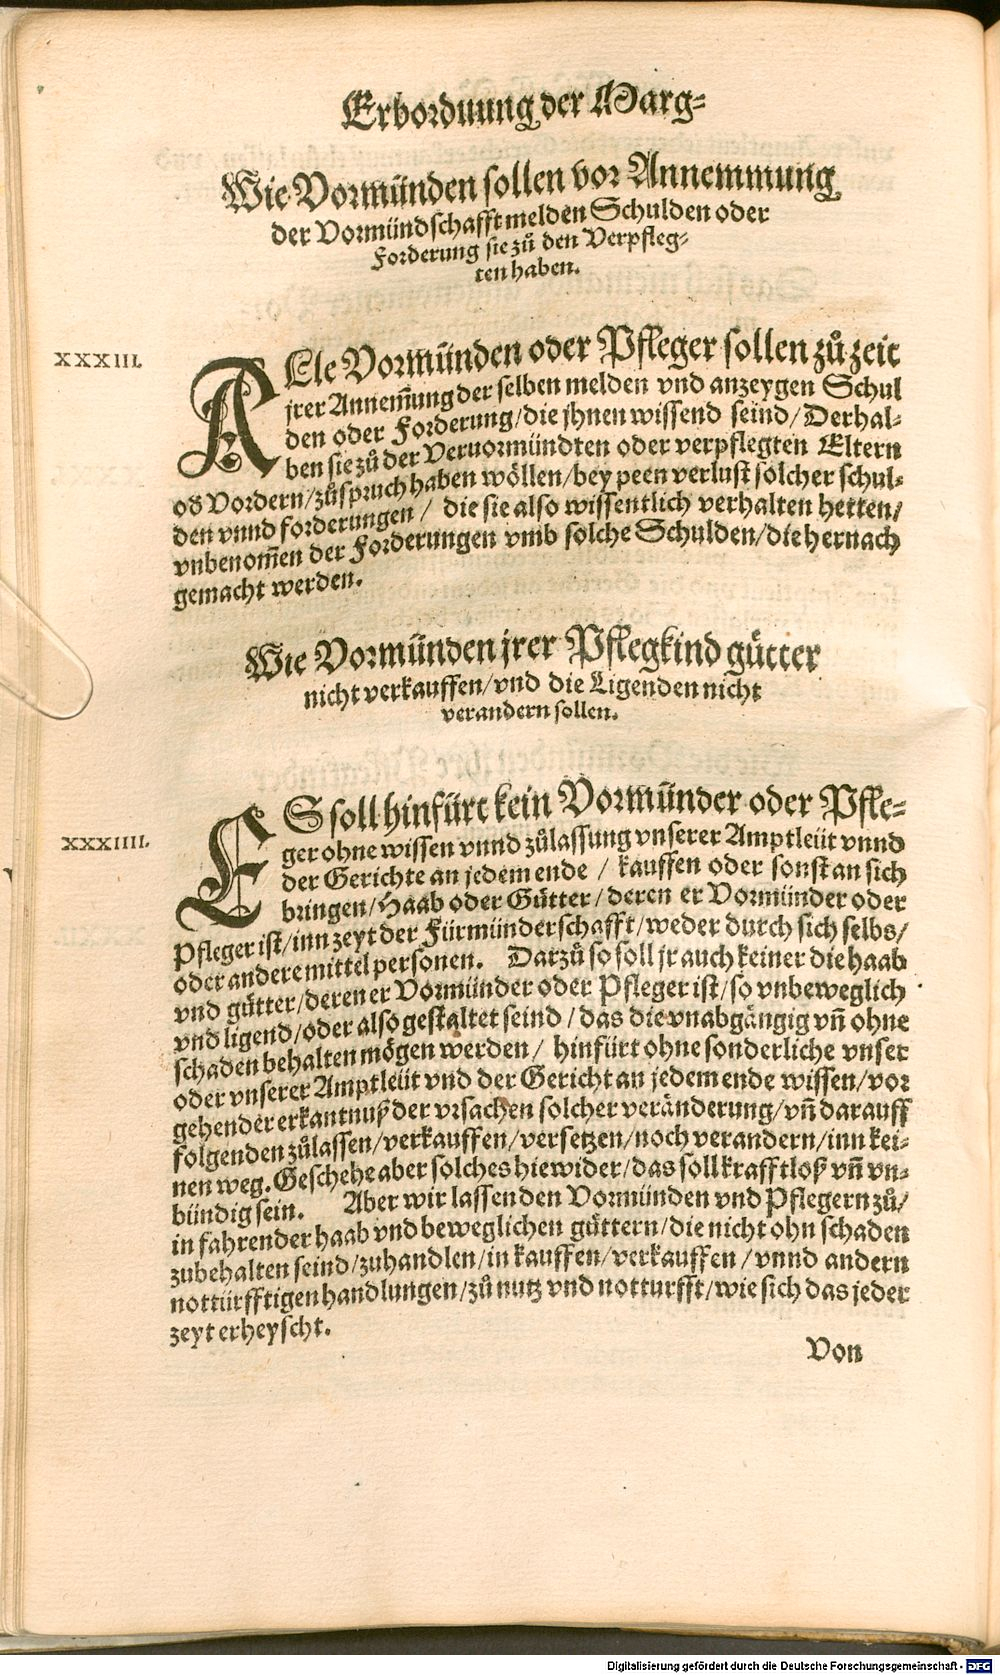 Erbordnung der Marg-
Wie Vormünden sollen vor Annemmung
der Vormündschafft melden Schulden oder
Forderung sie zů den Verpfleg-
ten haben.
XXXIII.
ALle Vormünden oder Pfleger sollen zů zeit
jrer Annem̃ung der selben melden vnd anzeygen Schul
den oder Forderung/die jhnen wissend seind/Derhal-
ben sie zů der Veruormündten oder verpflegten Eltern
od Vordern/zůspruch haben wöllen/bey peen verlust solcher schul-
den vnnd forderungen / die sie also wissentlich verhalten hetten/
vnbenom̃en der Forderungen vmb solche Schulden/die hernach
gemacht werden.
Wie Vormünden jrer Pflegkind gütter
nicht verkauffen/vnd die Ligenden nicht
verandern sollen.
XXXIIII.
ES soll hinfürt kein Vormünder oder Pfle-
ger ohne wissen vnnd zůlassung vnserer Amptleüt vnnd
der Gerichte an jedem ende / kauffen oder sonst an sich
bringen/Haab oder Gütter/deren er Vormünder oder
Pfleger ist/inn zeyt der Fürmünderschafft/weder durch sich selbs/
oder andere mittel personen. Darzů so soll jr auch keiner die haab
vnd gütter/deren er Vormünder oder Pfleger ist/so vnbeweglich
vnd ligend/oder also gestaltet seind/das die vnabgängig vñ ohne
schaden behalten mögen werden/ hinfürt ohne sonderliche vnser
oder vnserer Amptleüt vnd der Gericht an jedem ende wissen/vor
gehender erkantnuß der vrsachen solcher veränderung/vñ darauff
folgenden zůlassen/verkauffen/versetzen/noch verandern/inn kei-
nen weg. Geschehe aber solches hiewider/das soll krafftloß vñ vn-
bündig sein. Aber wir lassen den Vormünden vnd Pflegern zů/
in fahrender haab vnd beweglichen güttern/die nicht ohn schaden
zubehalten seind/zuhandlen/in kauffen/verkauffen/vnnd andern
nottürfftigen handlungen/zů nutz vnd notturfft/wie sich das jeder
zeyt erheyscht.
Von
Digitalisierung gefördert durch die Deutsche Forschungsgemeinschaft - DFG